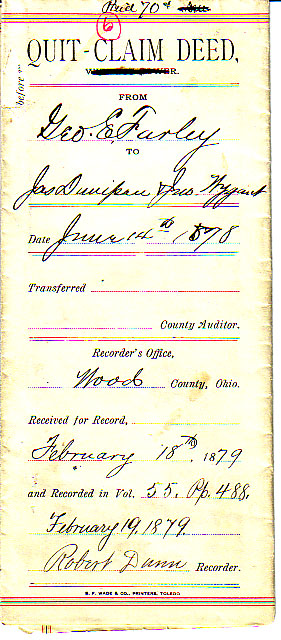 Paid 70 cts
6
QUIT-CLAIM DEED,
before
FROM
Geo. E. Farley
TO
Jas Dunipan & Jno. Wygant
Date June 14th 1878
Transferred
County Auditor.
Recorder's Office,
Wood County, Ohio.
Received for Record,
February 18th, 1879
and Recorded in Vol. 55. Pp. 488,
February 19, 1879.
Robert Dunn Recorder.
B. F. WADE & CO., PRINTERS, TOLEDO